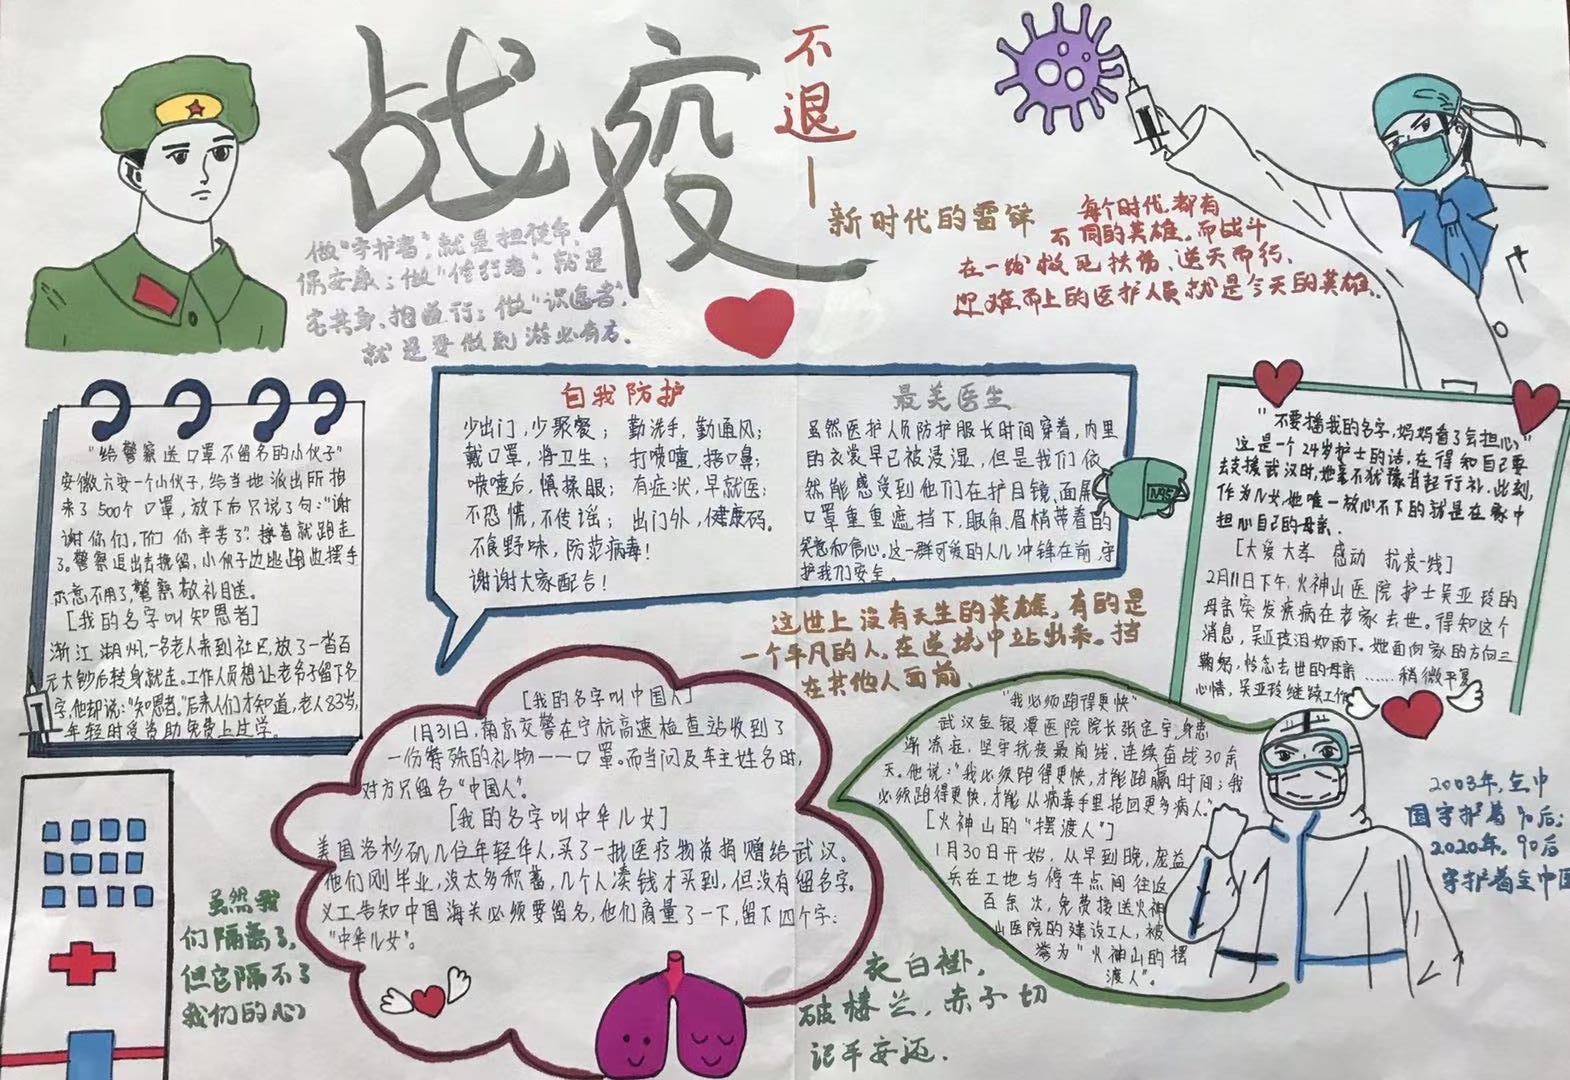 战疫
不退
新时代的雷锋
做“守护者”，就是担使命、
保安康；做“信行者”，就是
宅其身、担道行；做“识途者”，
就是要做到游必有方。
每个时代，都有
不同的英雄。而战斗
在一线救死扶伤、逆天而行、
迎难而上的医护人员就是今天的英雄。
“给警察送口罩不留名的小伙子”
安徽六安一个小伙子，给当地派出所抱
来了500个口罩，放下后只说了句：“谢
谢你们，你们辛苦了”接着就跑走
了。警察追出去挽留，小伙子边跑边摆手
示意不用了，警察敬礼目送。
[我的名字叫知恩者]
浙江湖州，一名老人来到社区，放了一沓百
元大钞后转身就走。工作人员想让老爷子留下名
字，他却说：“知恩者。”后来人们才知道，老人83岁，
年轻时受资助免费上过学。
自我防护
少出门，少聚餐； 勤洗手，勤通风；
戴口罩，讲卫生； 打喷嚏，捂口鼻；
喷嚏后，慎揉眼； 有症状，早就医；
不恐慌，不传谣； 出门外，健康码。
不食野味，防范病毒！
谢谢大家配合！
最美医生
虽然医护人员防护服长时间穿着，内里
的衣裳早已被浸湿，但是我们依
然能感受到他们在护目镜、面屏
口罩重重遮挡下，眼角、眉梢带着的
笑意和信心。这一群可爱的人儿冲锋在前，守
护我们安全。
N95
“不要播我的名字，妈妈看了会担心”
这是一个24岁护士的话，在得知自己要
去支援武汉时，她毫不犹豫背起行礼，此刻，
作为儿女，她唯一放心不下的就是在家中
担心自己的母亲。
[大爱大孝 感动 抗疫一线]
2月11日下午，火神山医院护士吴亚玲的
母亲突发疾病在老家去世。得知这个
消息，吴亚玲泪如雨下。她面向家的方向三
鞠躬，悼念去世的母亲……稍微平复
心情，吴亚玲继续工作
这世上没有天生的英雄，有的是
一个平凡的人，在逆境中站出来。挡
在其他人面前。
[我的名字叫中国人]
1月31日，南京交警在宁杭高速检查站收到了
一份特殊的礼物——口罩。而当问及车主姓名时，
对方只留名“中国人”。
[我的名字叫中华儿女]
美国洛杉矶几位年轻华人，买了一批医疗物资捐赠给武汉。
他们刚毕业，没太多积蓄，几个人凑钱才买到，但没有留名字。
义工告知中国海关必须要留名，他们商量了一下，留下四个字：
“中华儿女”。
“我必须跑得更快”
武汉金银潭医院院长张定宇，身患
渐冻症，坚守抗疫最前线，连续奋战30余
天。他说：“我必须跑得更快，才能跑赢时间；我
必须跑得更快，才能从病毒手里抢回更多病人。”
[火神山的“摆渡人”]
1月30日开始，从早到晚，庞益
兵在工地与停车点间往返
百余次，免费接送火神
山医院的建设工人，被
誉为“火神山的摆
渡人”。
2003年，全中
国守护着90后；
2020年。90后
守护着全中国
虽然我
们隔离了，
但它隔不了
我们的心
衣白褂，
破楼兰，赤子切
记平安还.